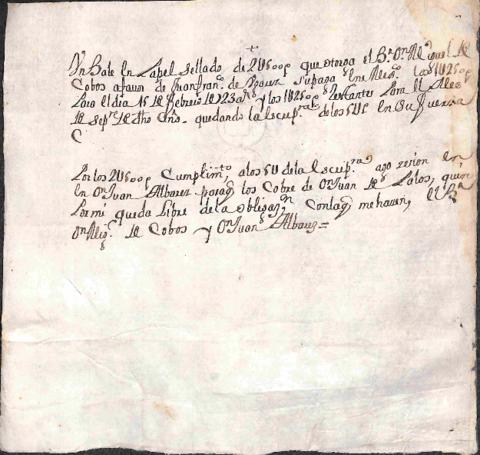 Un Bale en papel sellado de 2U500p que otorga el Br Dn Miguel de
Cobos afavor de Juan fran.co de supaga en los 1U250p
para el dia 15 de febrero de 723 a.s y los 1U250p restantes para el
de sep.re de dho año quedando la escrip.ra de los 5U p en su fuerza
Por los 2U500p cumplim.to a los 5U de la escrip.ra ago en
en Dn Juan Albarez para q los cobre de Dn Juan de quien
por mi queda libre de la obligaz.n con la q me haran, el Br
Dn Mig.l de Cobos y Dn Juan Albarez =